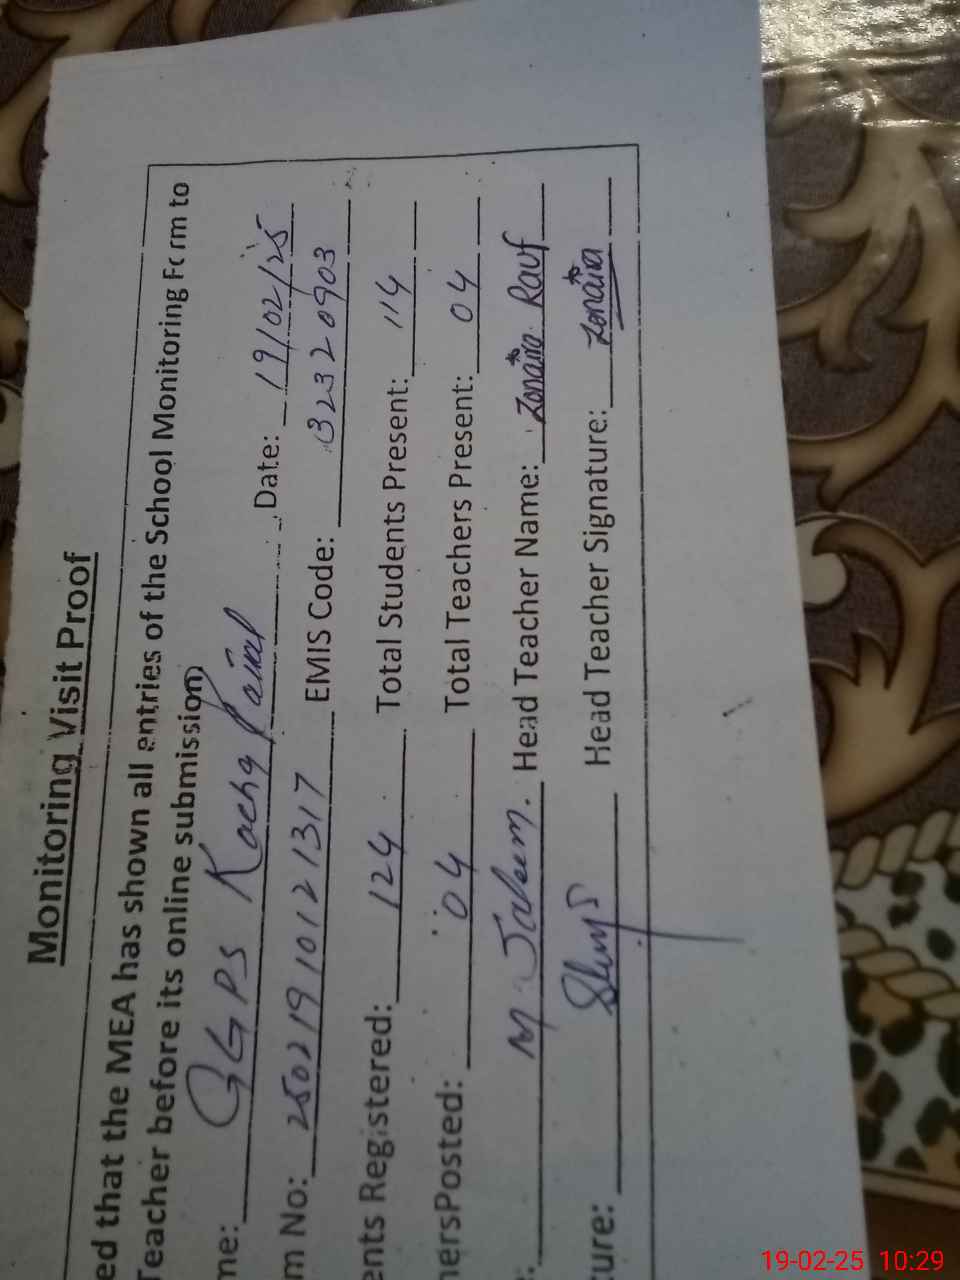 Monitoring Visit Proof
ed that the MEA has shown all entries of the School Monitoring Form to
Teacher before its online submission)
me: GGPS Kacha Date: 19/02/25
m No: 25021910121317 EMIS Code: 32320903
ents Registered: 124 Total Students Present: 114
hersPosted: 04 Total Teachers Present: 04
: M. Saleem. Head Teacher Name: Zonaira Rauf
ture: Head Teacher Signature: Zonaira
19-02-25 10:29